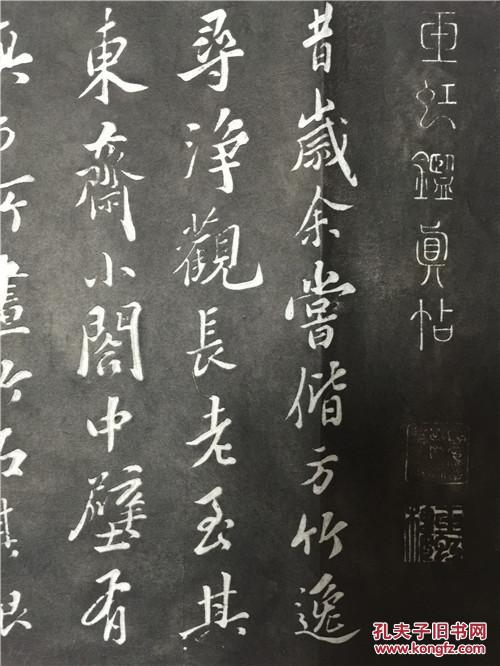 玉虹鑑真帖
昔歲余嘗偕方竹逸
尋淨觀長老至其
東齋小閣中壁有
與可所畫竹石其根
孔夫子旧书网
www.kongfz.com